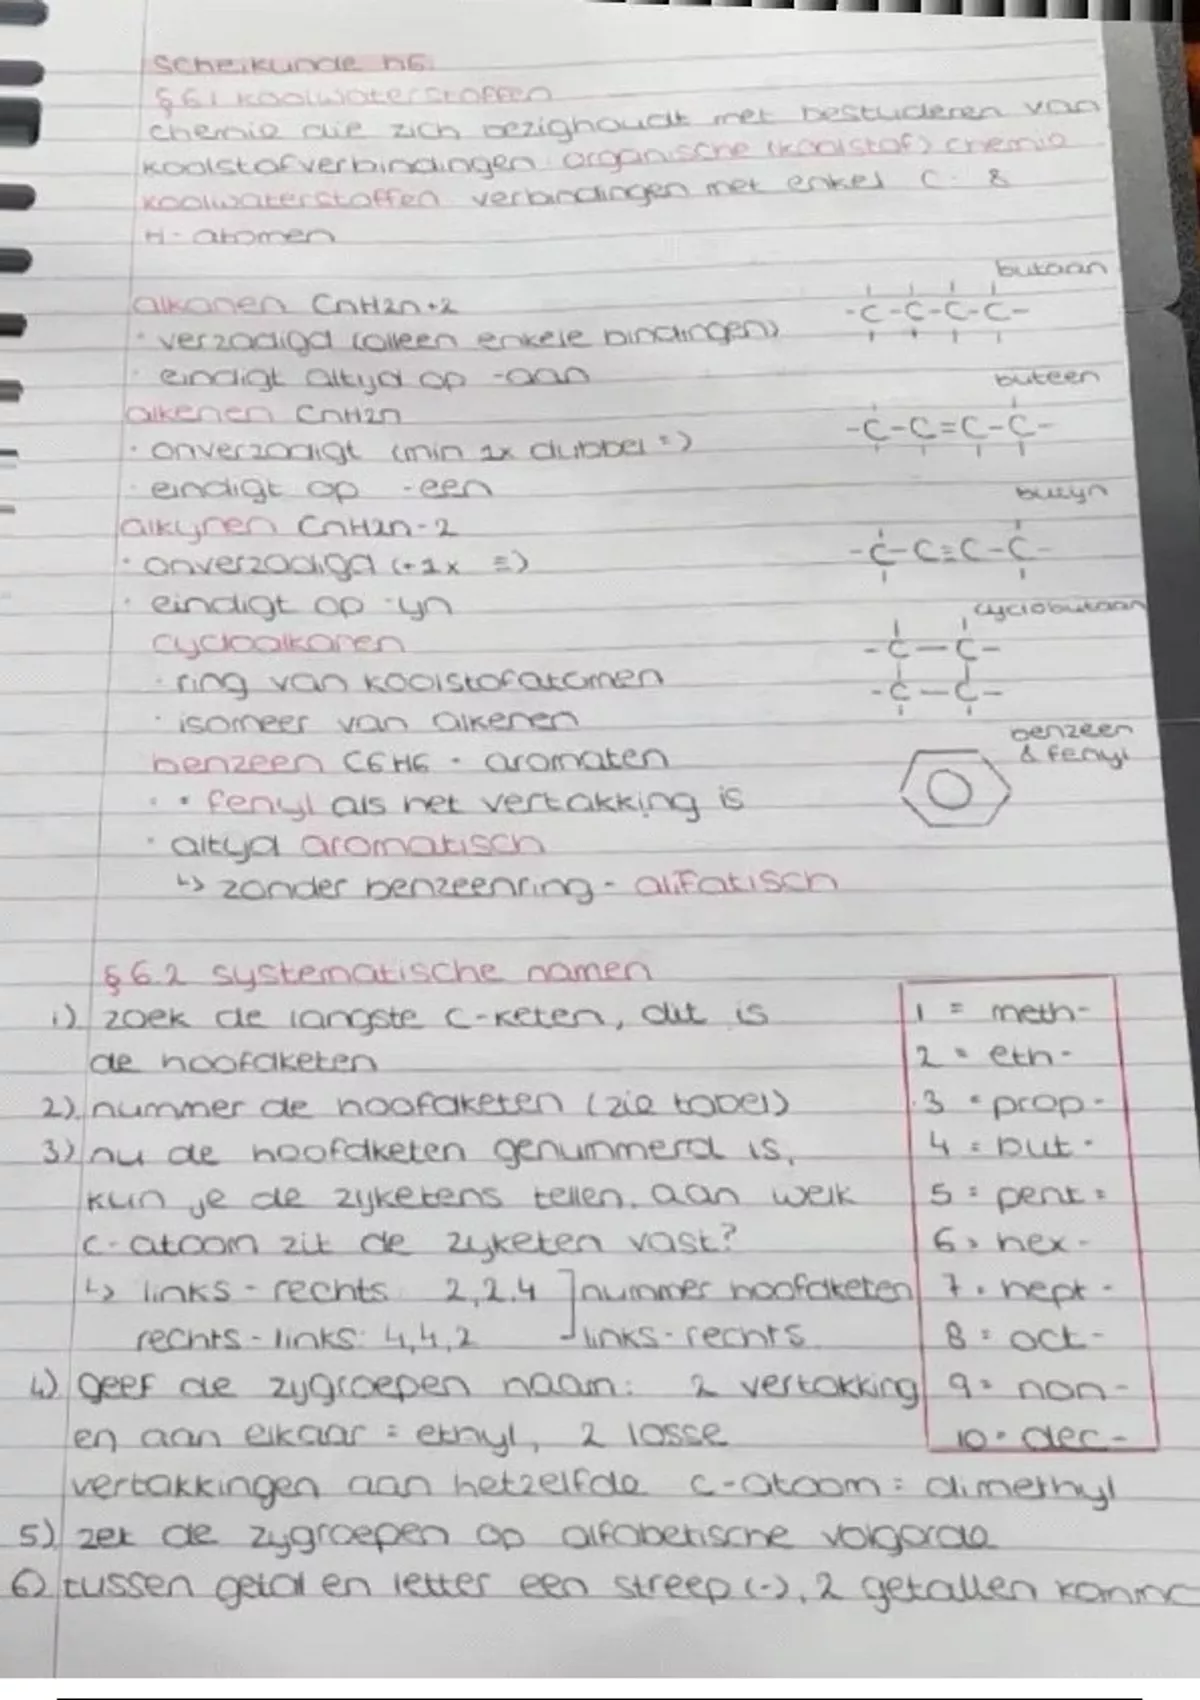 Scheikunde h6.
§ 6.1 koolwaterstoffen
chemie die zich bezighoudt met bestuderen van
koolstofverbindingen: organische (koolstof) chemie
koolwaterstoffen verbindingen met enkel C- &
H-atomen
butaan
alkanen CnH2n+2
-C-C-C-C-
· verzadigd (alleen enkele bindingen)
· eindigt altijd op -aan
buteen
alkenen CnH2n
-C-C=C-C-
· onverzadigt (min 1x dubbel =)
· eindigt op -een
butyn
alkynen CnH2n-2
-C-C≡C-C-
· onverzadigd (+1x ≡)
· eindigt op -yn
cyclobutaan
cycloalkanen
-C-C-
· ring van koolstofatomen
-C-C-
· isomeer van alkenen
benzeen
& fenyl
benzeen C6H6 - aromaten
· · fenyl als het vertakking is
· altijd aromatisch
↳ zonder benzeenring - alifatisch
§ 6.2 systematische namen
1) zoek de langste C-keten, dit is
de hoofdketen
2) nummer de hoofdketen (zie tabel)
3) nu de hoofdketen genummerd is,
kun je de zijketens tellen. aan welk
C-atoom zit de zijketen vast?
↳ links - rechts 2,2,4 ] nummer hoofdketen
rechts - links: 4,4,2 links - rechts
4) geef de zijgroepen naam: 2 vertakking
en aan elkaar = ethyl, 2 losse
vertakkingen aan hetzelfde C-atoom = dimethyl
5) zet de zijgroepen op alfabetische volgorde
6) tussen getal en letter een streep (-), 2 getallen komma
1 = meth-
2 = eth-
3 = prop-
4 = but-
5 = pent-
6 = hex-
7 = hept-
8 = oct-
9 = non-
10 = dec-